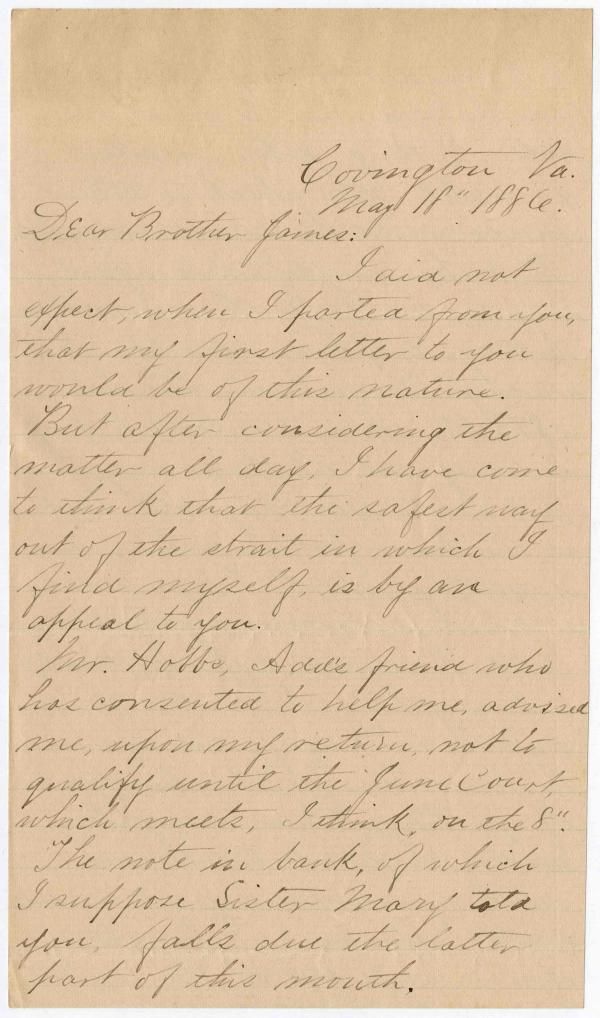 Covington Va.
May 18" 1886.
Dear Brother James:
I did not
expect, when I parted from you,
that my first letter to you
would be of this nature.
But after considering the
matter all day, I have come
to think that the safest way
out of the strait in which I
find myself, is by an
appeal to you.
Mr. Hobbs, Add's friend who
has consented to help me, advised
me, upon my return, not to
qualify until the June Court,
which meets, I think, on the 8".
The note in bank, of which
I suppose Sister Mary told
you, falls due the latter
part of this month.